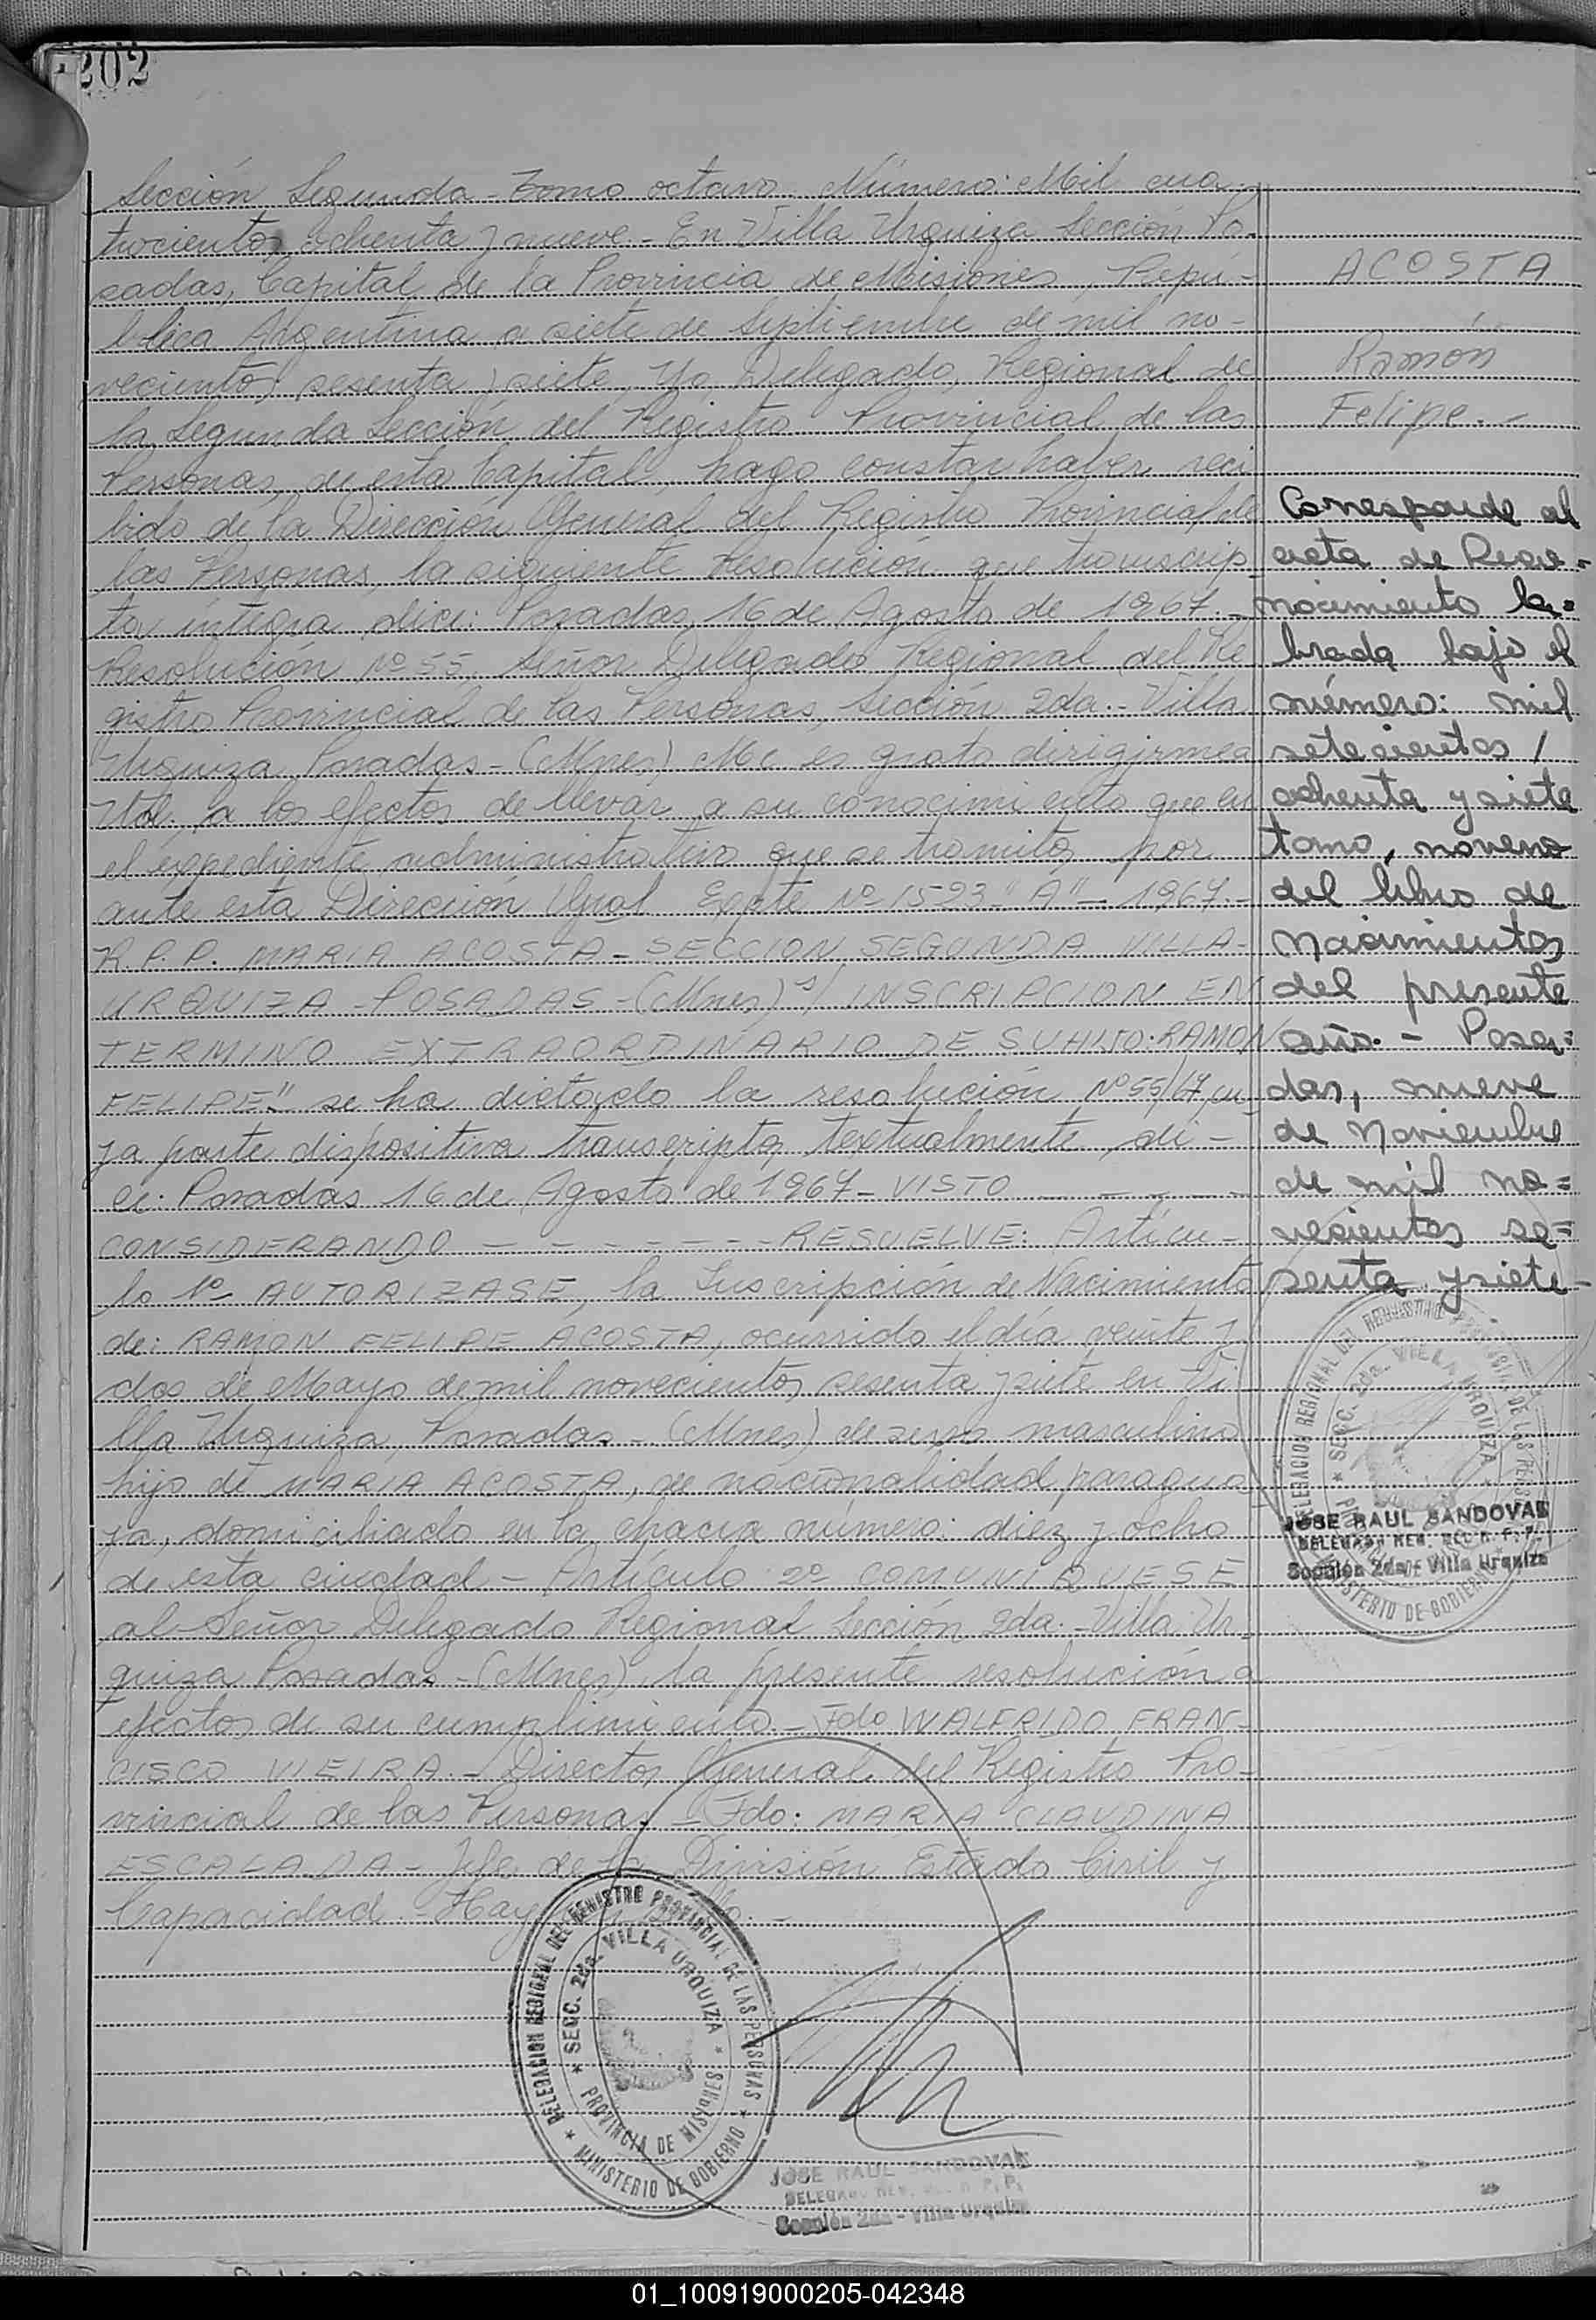 202
Sección Segunda - Tomo octavo. Número: Mil cua-
trocientos ochenta y nueve - En Villa Urquiza Sección Po-
sadas, Capital de la Provincia de Misiones, Repú-
blica Argentina a siete de Septiembre de mil no-
vecientos sesenta y siete. Yo Delegado Regional de
la Segunda Sección del Registro Provincial de las
Personas, de esta Capital, hago constar haber reci
bido de la Dirección General del Registro Provincial de
las Personas, la siguiente Resolución que transcrip
ta íntegra dice: Posadas, 16 de Agosto de 1967.-
Resolución Nº 55, Señor Delegado Regional del Re
gistro Provincial de las Personas, Sección 2da.- Villa
Urquiza Posadas - (Mnes) Me es grato dirigirme a
Ud. a los efectos de llevar a su conocimiento que en
el expediente administrativo que se tramitó por
ante esta Dirección Gral Expte Nº 1593 "A" - 1967.-
R.P.P. MARIA ACOSTA - SECCION SEGUNDA VILLA-
URQUIZA - POSADAS - (Mnes) s/ INSCRIPCION EN
TERMINO EXTRAORDINARIO DE SU HIJO: RAMON
FELIPE". se ha dictado la resolución Nº 55/67, cu-
ya parte dispositiva transcripta textualmente di-
ce: Posadas 16 de Agosto de 1967 - VISTO - - - -
CONSIDERANDO - - - - - - - RESUELVE: Artícu-
lo 1º AUTORIZASE, la Inscripción de Nacimiento
de: RAMON FELIPE ACOSTA, ocurrido el día veinte y
dos de Mayo de mil novecientos sesenta y siete en Vi
lla Urquiza, Posadas - (Mnes) de sexo masculino
hijo de MARIA ACOSTA, de nacionalidad paragua
ya, domiciliado en la chacra número: diez y ocho
de esta ciudad - Artículo 2º COMUNIQUESE
al Señor Delegado Regional Sección 2da.- Villa Ur-
quiza Posadas - (Mnes), la presente resolución a
efectos de su cumplimiento. - Fdo WALFRIDO FRAN-
CISCO VIEIRA. - Director General del Registro Pro-
vincial de las Personas - Fdo: MARIA CLAUDINA
ESCALADA - Jefe de la División Estado Civil y
Capacidad. - Hay
ACOSTA
Ramón
Felipe.-
Corresponde al
acta de Reco-
nocimiento la=
brada bajo el
número: mil
setecientos /
ochenta y siete
tomo, noveno
del libro de
Nacimientos
del presente
año. - Posa=
das, nueve
de Noviembre
de mil no=
vecientos se=
senta y siete -
DELEGACION REGIONAL DEL REGISTRO PROVINCIAL DE LAS PERSONAS
SECC. 2da. VILLA URQUIZA
JOSE RAUL SANDOVAL
DELEGADO REG. DEL R. P. P.
Sección 2da - Villa Urquiza
MINISTERIO DE GOBIERNO
DELEGACION REGIONAL DEL REGISTRO PROVINCIAL DE LAS PERSONAS
SECC. 2da. VILLA URQUIZA
PROVINCIA DE MISIONES
MINISTERIO DE GOBIERNO
JOSE RAUL SANDOVAL
DELEGADO REG. DEL R. P. P.
Sección 2da - Villa Urquiza
01_100919000205-042348